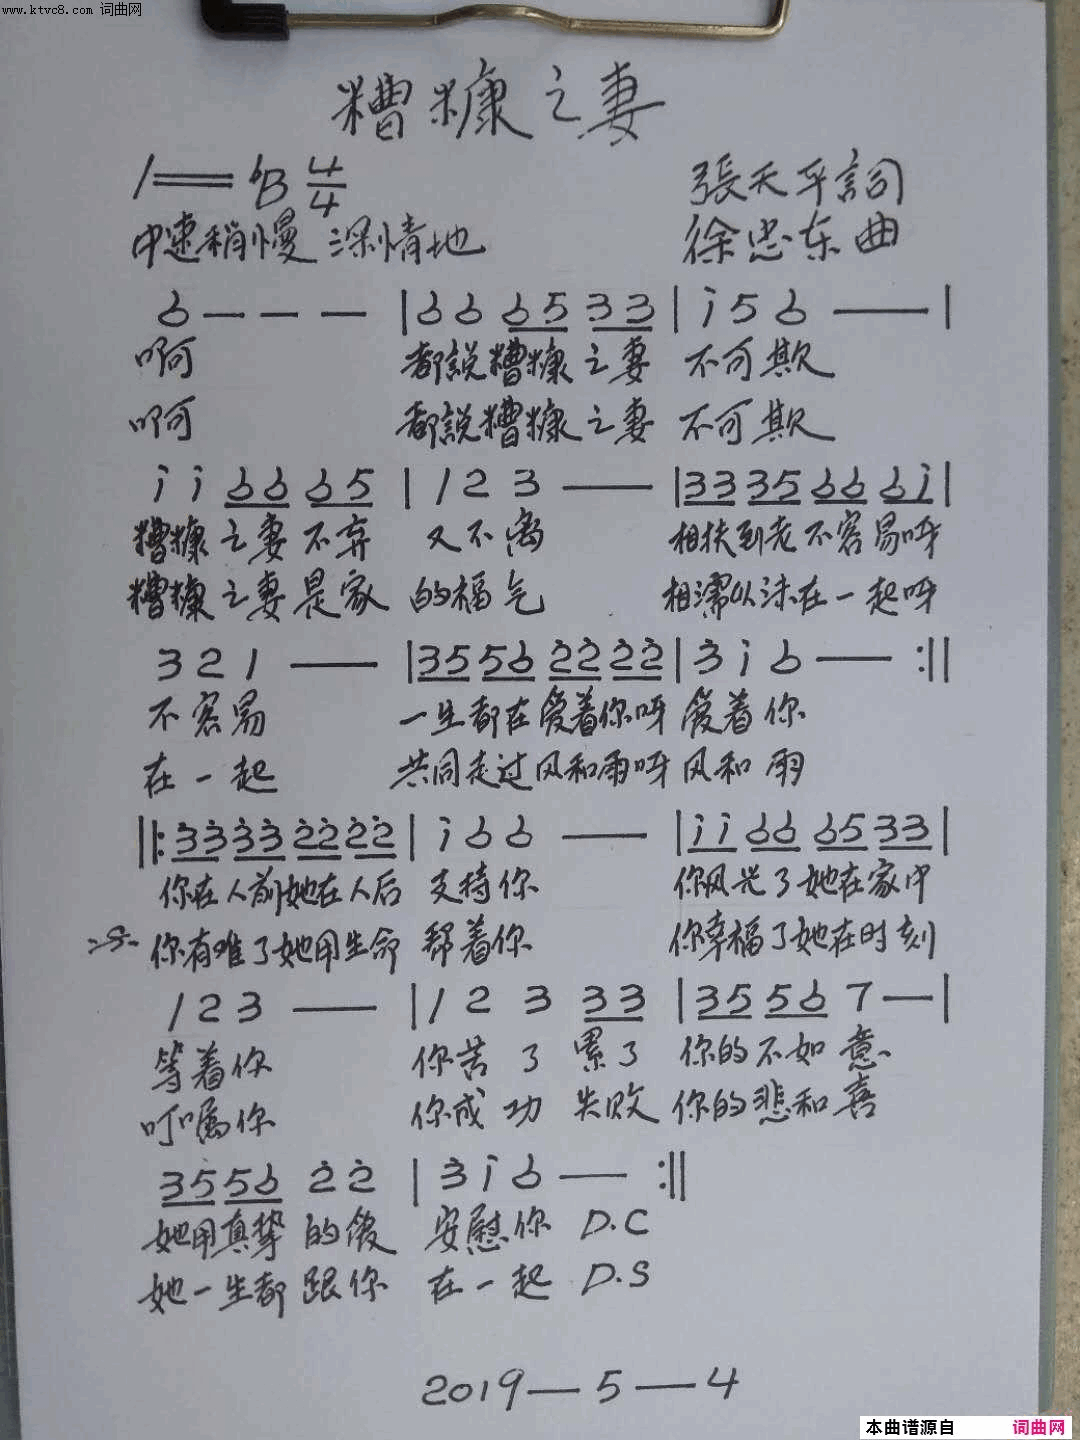 www.ktvc8.com 词曲网
糟糠之妻
1=♭B 4/4
張天平詞
中速稍慢 深情地
徐忠东曲
6 — — — | 6 6 6 5 3 3 | i 5 6 — |
啊 都説糟糠之妻 不可欺
啊 都説糟糠之妻 不可欺
i i 6 6 6 5 | 1 2 3 — | 3 3 3 5 6 6 6 i |
糟糠之妻不弃 又不离 相扶到老不容易呀
糟糠之妻是家 的福气 相濡以沫在一起呀
3 2 1 — | 3 5 5 6 2 2 2 2 | 3 i 6 — :||
不容易 一生都在爱着你呀 爱着你
在一起 共同走过风和雨呀 风和雨
||: 3 3 3 3 2 2 2 2 | i 6 6 — | i i 6 6 6 5 3 3 |
你在人前她在人后 支持你 你风光了她在家中
你有难了她用生命 帮着你 你幸福了她在时刻
1 2 3 — | 1 2 3 3 3 | 3 5 5 6 7 — |
等着你 你苦了累了 你的不如意
叮嘱你 你成功失败 你的悲和喜
3 5 5 6 2 2 | 3 i 6 — :||
她用真挚的爱 安慰你 D.C
她一生都跟你 在一起 D.S
2019—5—4
本曲谱源自 词曲网